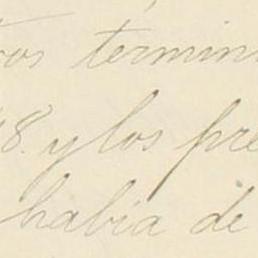 términ
8. y los pre
había de